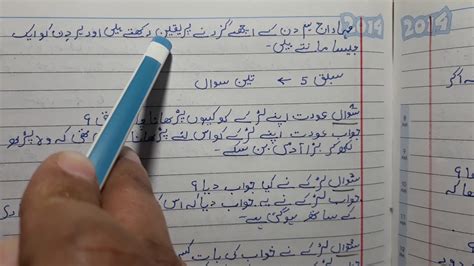 2014 2014
دن کے اچھے گزرنے پر یقین رکھتے ہیں اور ہر دن کو ایک
جیسا مانتے ہیں۔
سبق 5 ← تین سوال
سوال عورت اپنے لڑکے کو کیوں پڑھانا ؟
جواب عورت اپنے لڑکے کو اس لئے پڑھانا تھی کہ وہ پڑھ
لکھ کر بڑا آدمی بن سکے۔
سوال لڑکے نے کیا جواب دیا؟
جواب لڑکے نے یہ جواب دیا کہ اس
کے ساتھ ہو گئی ہے۔
سوال لڑکے نے جواب کی بات کس